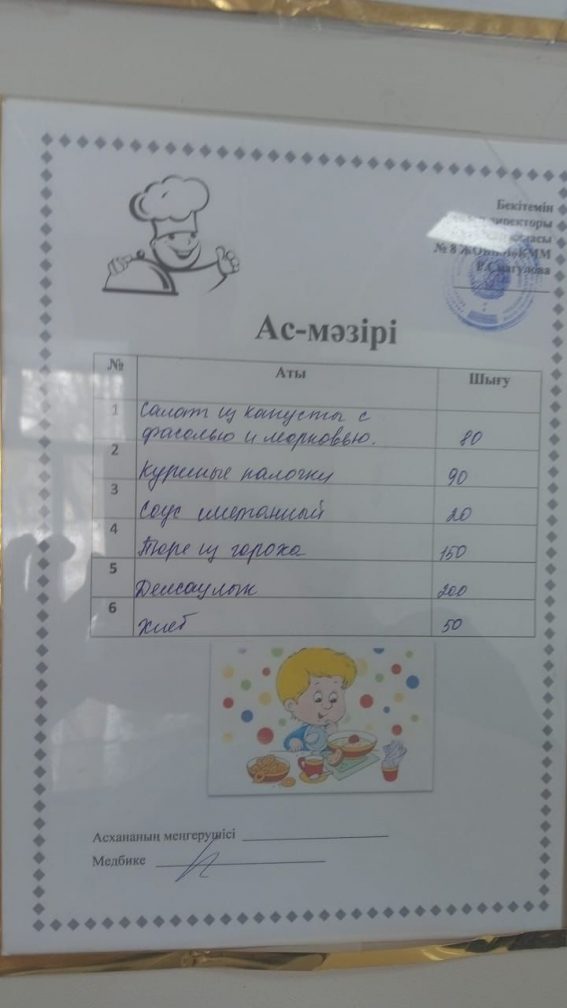 Бекітемін
директоры
№ 8 ЖОББМ КММ
Ас-мәзірі
№ Аты Шығу
1 Салат из капусты с
фасолью и морковью. 80
2 Куриные палочки 90
3 Соус сметанный 20
4 Пюре из гороха 150
5 Денсаулык 200
6 Хлеб 50
Асхананың меңгерушісі
Медбике